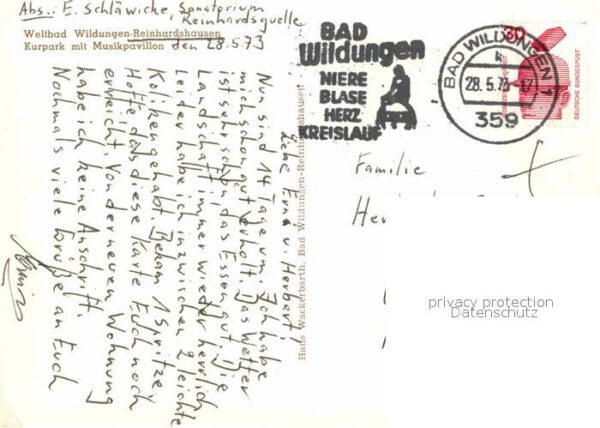 Abs.: E. Schläwiche, Sanatorium
Reinhardsquelle
Weltbad Wildungen-Reinhardshausen
Kurpark mit Musikpavillon
den 28.5.73
Liebe Erna u. Herbert!
Nun sind 14 Tage rum. Ich habe
mich schon gut erholt. Das Wetter
ist sehr schön, das Essen gut. Die
Landschaft immer wieder herrlich
Leider habe ich inzwischen 2 leichte
Koliken gehabt. Bekam 1 Spritze.
Hoffe das diese Karte Euch noch
erreicht. Von der neuen Wohnung
habe ich keine Anschrift.
Nochmals viele Grüße an Euch
Hans Wackerbarth, Bad Wildungen-Reinhardshausen
BAD
Wildungen
NIERE
BLASE
HERZ
KREISLAUF
BAD WILDUNGEN 1
k
28.5.73-17
359
30
DEUTSCHE BUNDESPOST
Familie
privacy protection
Datenschutz